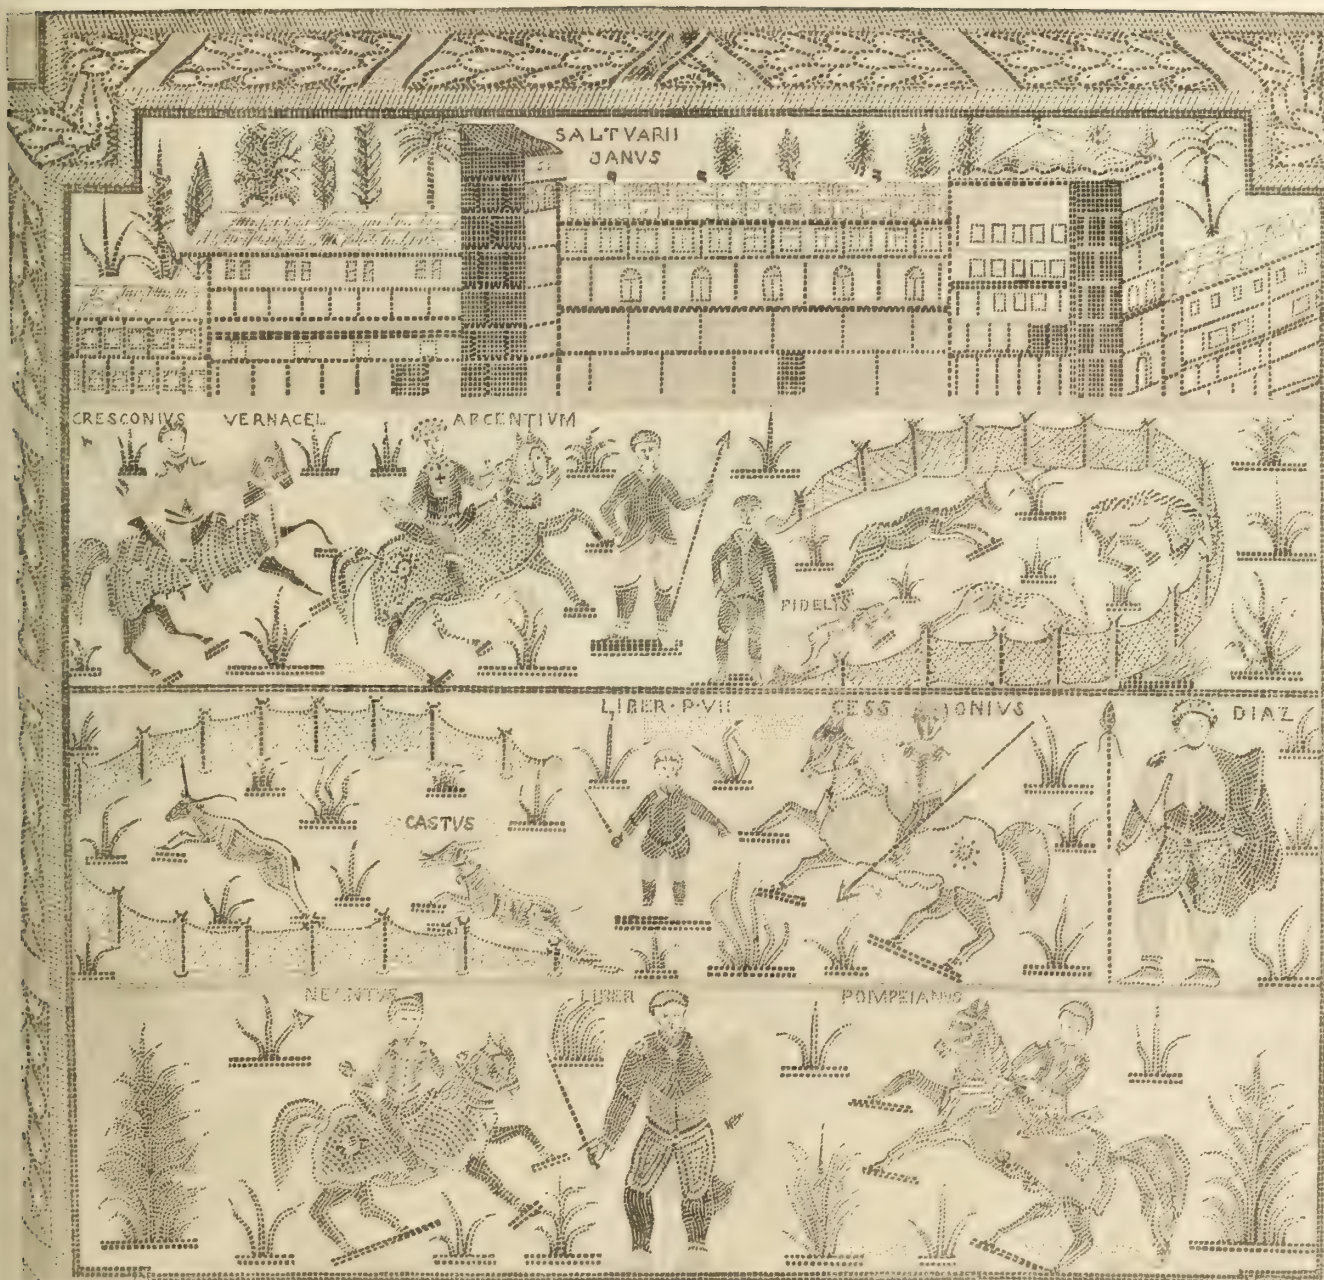 SALTVARII
JANVS
CRESCONIVS VERNACEL ARCENTIVM
FIDELIS
LIBER·P·VII CESS ONIVS DIAZ
CASTVS
LIBER POMPEIANVS